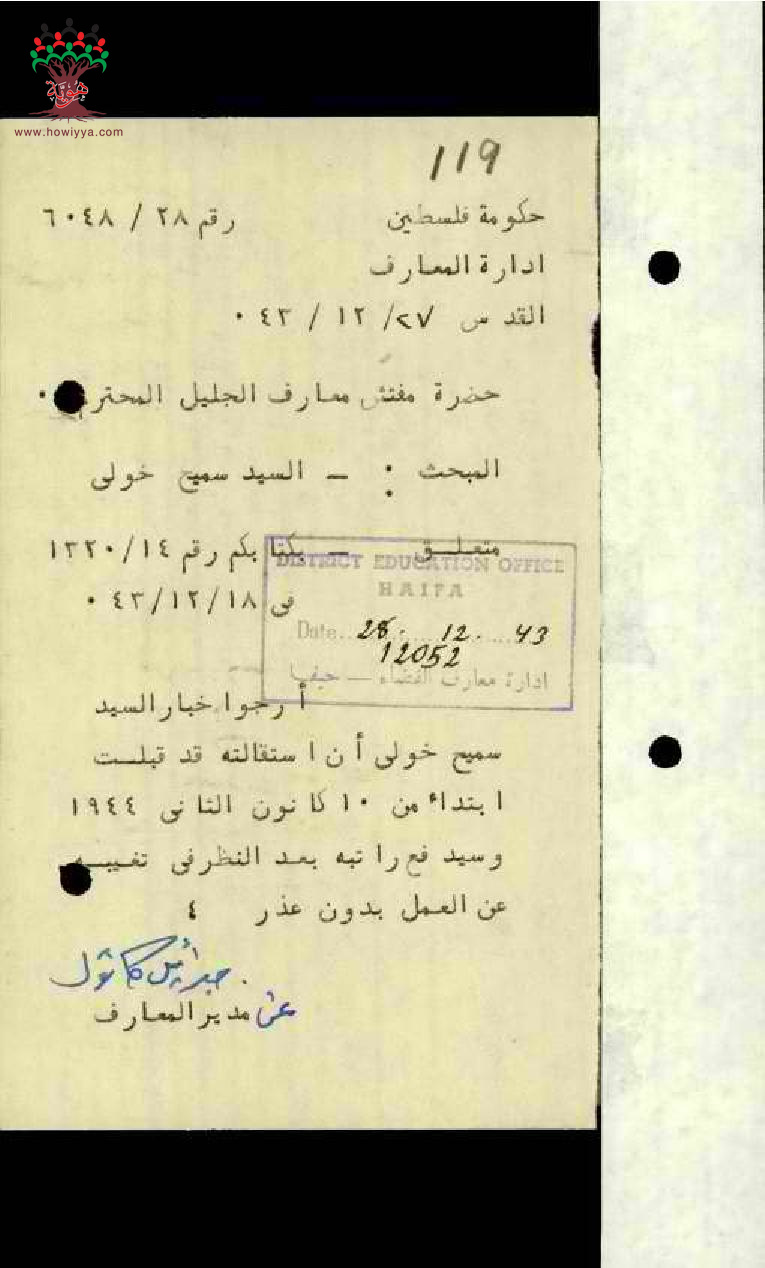 هُوِيَّة
www.howiyya.com
119
حكومة فلسطين رقم ٢٨ / ٦٠٤٨
ادارة المعارف
القدس ٢٧/ ١٢ / ٤٣ ٠
حضرة مفتش معارف الجليل المحترم ٠
المبحث : ـ السيد سميح خولى
متعلـــق ـ بكتابكم رقم ١٣٢٠/١٤
فى ٤٣/١٢/١٨ ٠
DISTRICT EDUCATION OFFICE
HAIFA
Date.. 28. 12. 43
12052
ادارة معارف القضاء — حيفا
أرجو اخبار السيد
سميح خولى أن استقالته قد قبلــت
ابتداء من ١٠ كانون الثانى ١٩٤٤
وسيدفع راتبه بعد النظر فى تغيبــه
عن العمل بدون عذر ٤
جبرائيل كاتول
عن مدير المعارف